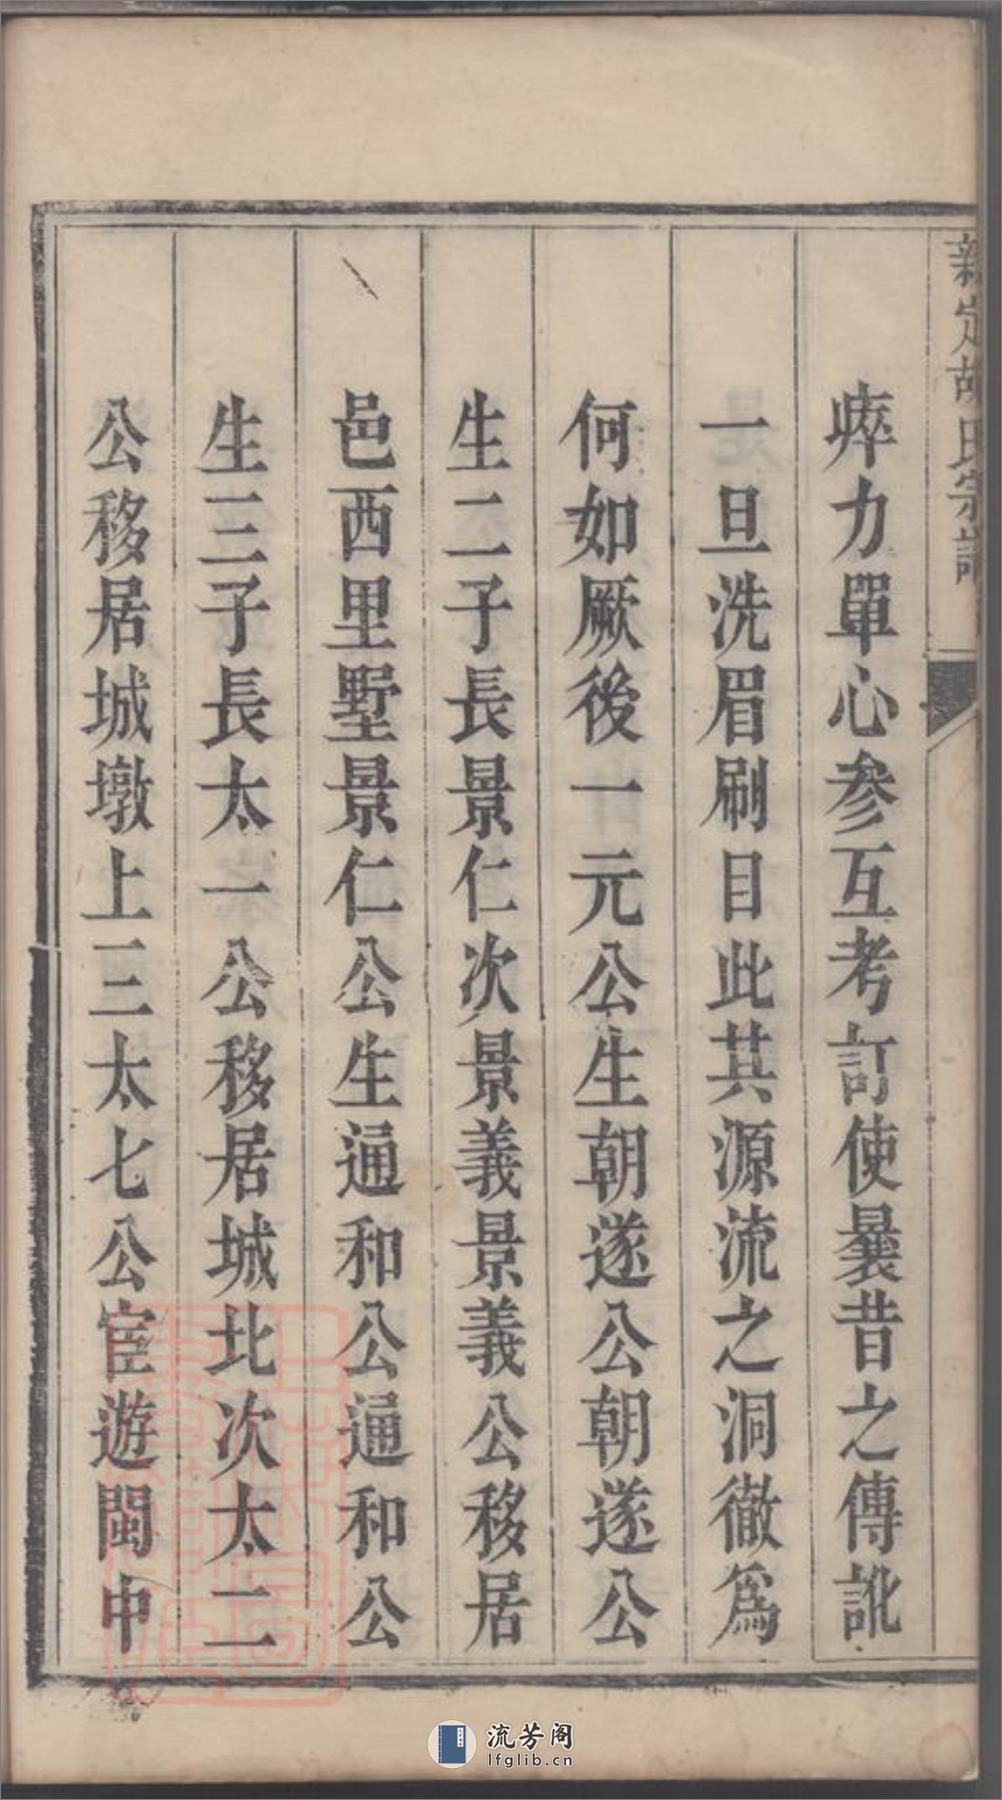 新定胡氏宗譜
瘁力單心參互考訂使曩昔之傳訛
一旦洗眉刷目此其源流之洞徹爲
何如厥後一元公生朝遂公朝遂公
生二子長景仁次景義景義公移居
邑西里墅景仁公生通和公通和公
生三子長太一公移居城北次太二
公移居城墩上三太七公宦遊閩中
流芳阁
lfglib.cn